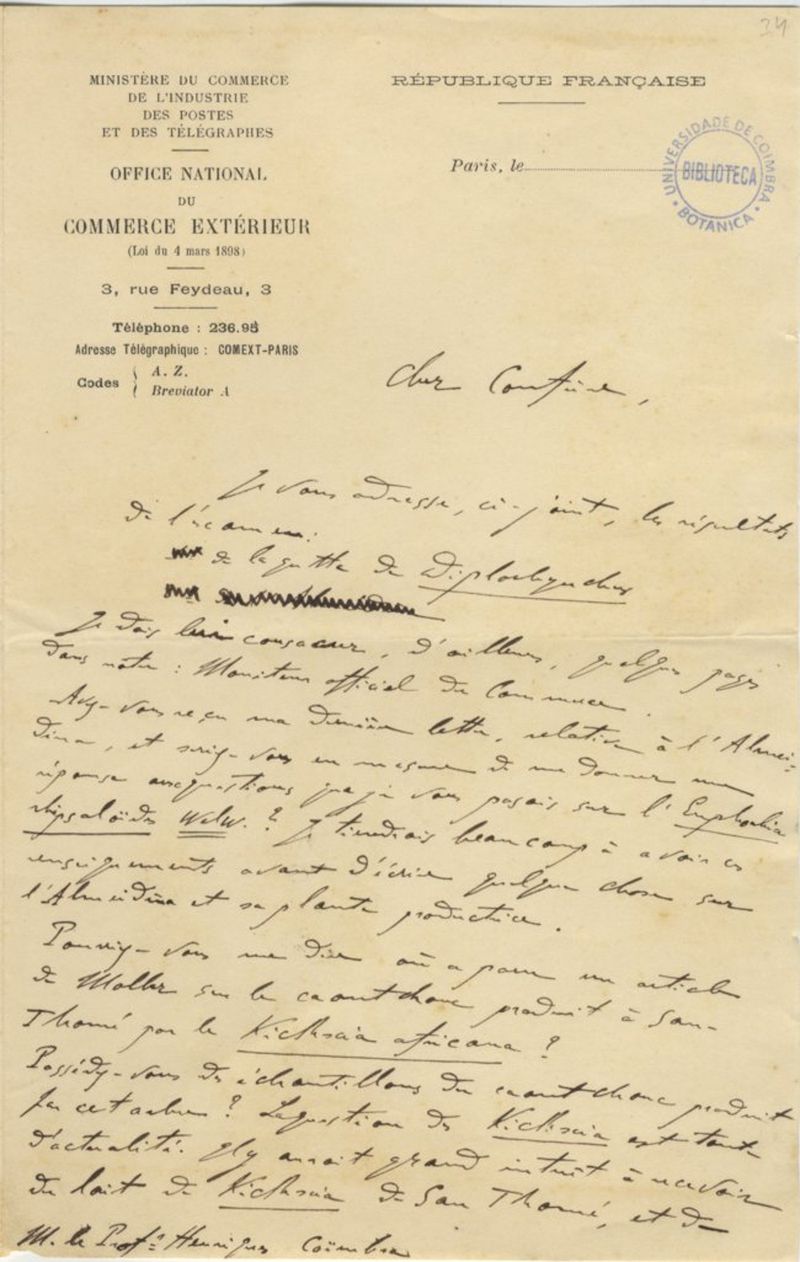 24
MINISTÈRE DU COMMERCE
DE L'INDUSTRIE
DES POSTES
ET DES TÉLÉGRAPHES
OFFICE NATIONAL
DU
COMMERCE EXTÉRIEUR
(Loi du 4 mars 1898)
3, rue Feydeau, 3
Téléphone : 236.95
Adresse Télégraphique : COMEXT-PARIS
Codes
A. Z.
Breviator A
RÉPUBLIQUE FRANÇAISE
Paris, le
UNIVERSIDADE DE COIMBRA
BIBLIOTECA
BOTANICA
Cher Confrère,
Je vous adresse, ci-joint, les résultats
de l'examen :
de la gutta de Diplorhynchus
Je dois lui consacrer, d'ailleurs, quelques pages
dans notre : Moniteur officiel du Commerce.
Avez-vous reçu ma dernière lettre, relative à l'Almei-
dina, et seriez-vous en mesure de me donner une
réponse aux questions que je vous posais sur l'Euphorbia
rhipsaloïdes Welw. ? Je tiendrais beaucoup à avoir ces
renseignements avant d'écrire quelque chose sur
l'Almeidina et sa plante productrice.
Pourriez-vous me dire où a paru un article
de Moller sur le caoutchouc produit à San-
Thomé par le Kickxia africana ?
Possédez-vous des échantillons du caoutchouc produit
par cet arbre ? La question des Kickxia est toute
d'actualité. Il y aurait grand intérêt à recevoir
du lait de Kickxia de San Thomé, et de
M. le Profr Henriques Coïmbra